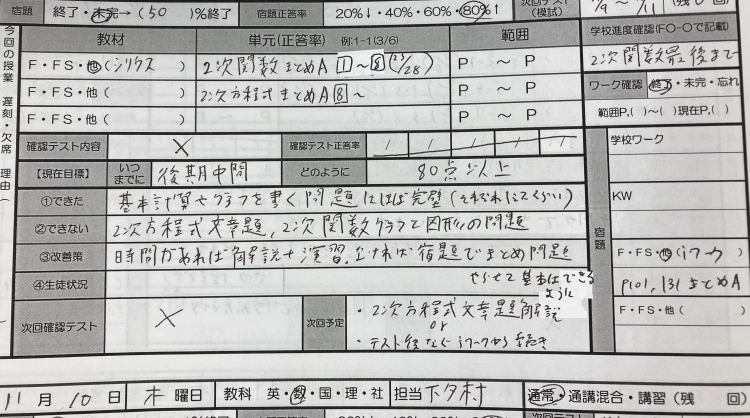 宿題 終了・未完→(50)%終了 宿題正答率 20%↓・40%・60%・80%↑ 次回テスト(模試)
今回の授業 遅刻・欠席 理由(
教材 単元(正答率) 例:1-1(3/6) 範囲 学校進度確認(F〇-〇で記載)
F・FS・他(シリウス) 2次関数まとめA 1~8 (21/28) P ~ P 2次関数最後まで
F・FS・他( ) 2次方程式まとめA 8~ P ~ P ワーク確認 終了・未完・忘れ
F・FS・他( ) P ~ P 範囲P.( )~( )現在P.( )
確認テスト内容 × 確認テスト正答率 / / / / / 宿題 学校ワーク
【現在目標】 いつまでに 後期中間 どのように 80点以上
①できた 基本計算やグラフを書く問題にはほぼ完璧 KW
②できない 2次方程式文章題, 2次関数グラフと図形の問題
③改善策 時間があれば解説+演習. なければ宿題でまとめ問題 F・FS・他(iワーク)
④生徒状況 やらせて基本はできるように P101, 131 まとめA
次回確認テスト × 次回予定 ・2次方程式文章題解説 F・FS・他( )
or
・テスト後なので iワークから続き
11月10日 木曜日 教科 英・数・国・理・社 担当 下夕村 通常・通講混合・講習(残 回)